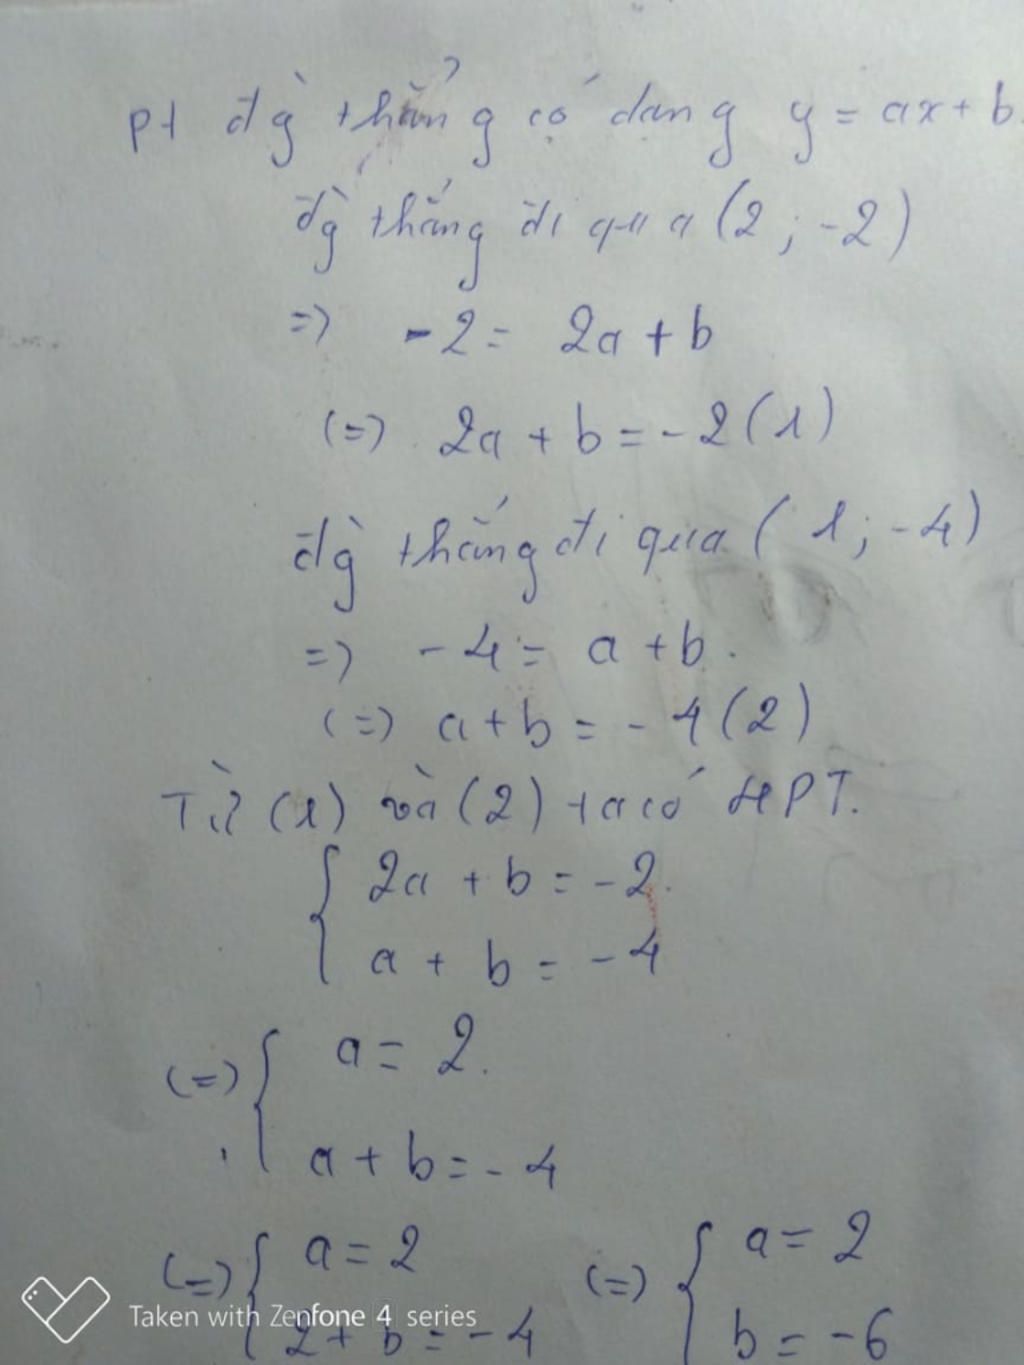 pt đg̀ thẳng có dạng y = ax + b.
đg̀ thẳng đi qua (2 ; -2)
=> -2 = 2a + b
(=) 2a + b = -2 (1)
đg̀ thẳng đi qua ( 1 ; -4)
=> -4 = a + b.
(=) a + b = - 4 (2)
Từ (1) và (2) ta có HPT.
{ 2a + b = -2.
a + b = -4
(=) { a = 2.
a + b = - 4
(=) { a = 2 (=) { a = 2
2 + b = -4 b = -6
Taken with Zenfone 4 series